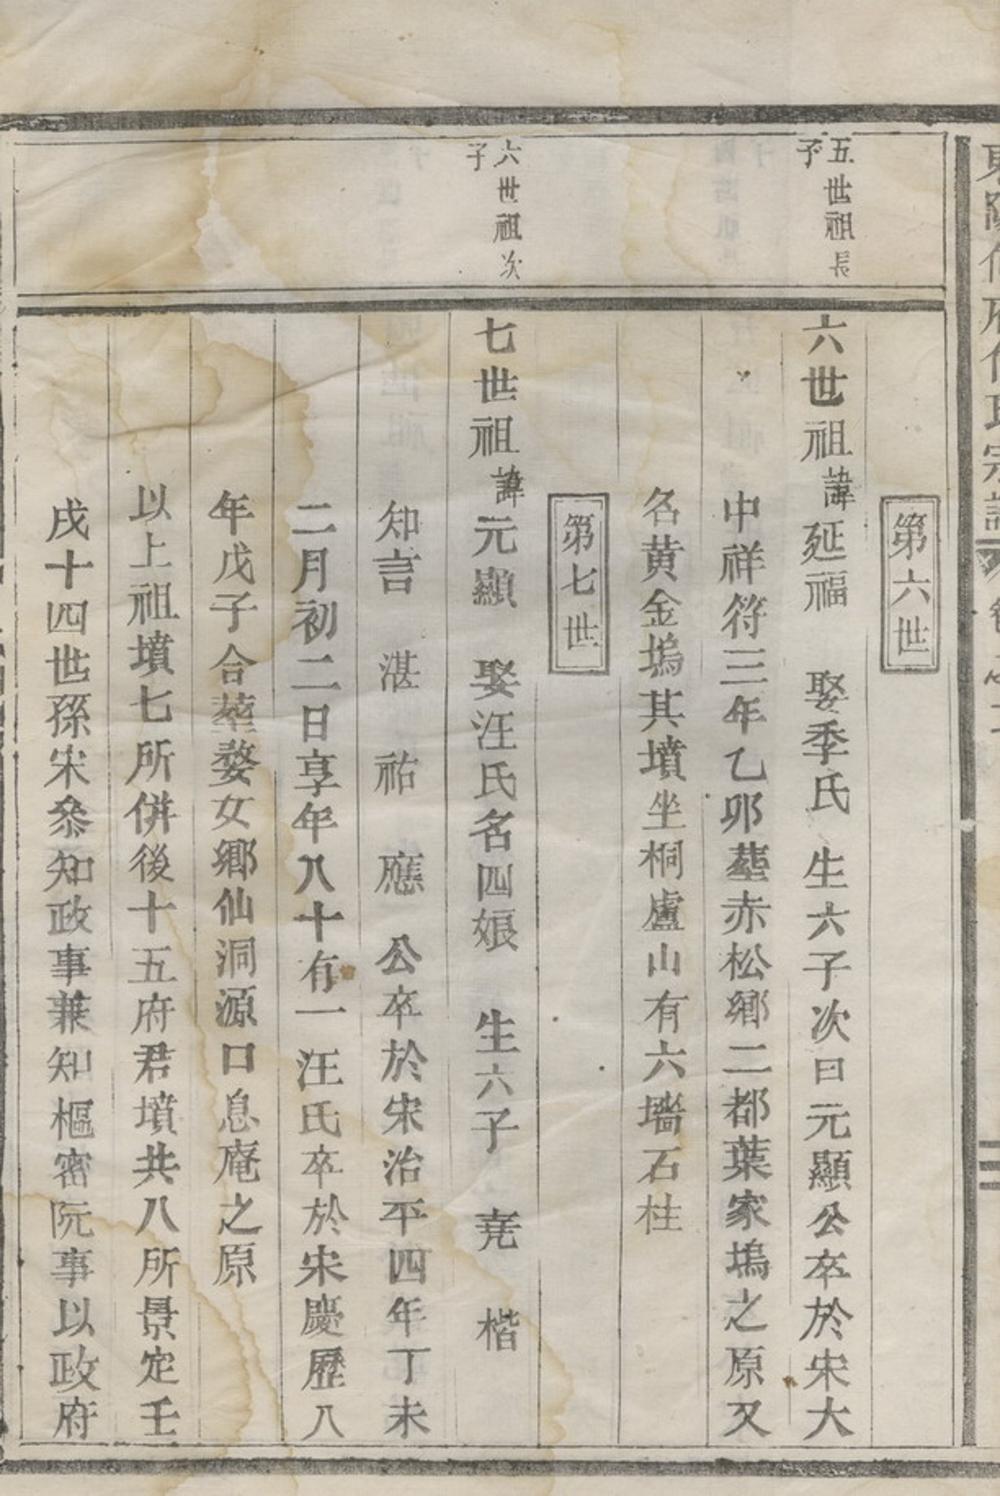 第六世
五世祖長
子
六世祖諱延福 娶季氏 生六子次曰元顯公卒於宋大
中祥符三年乙卯塟赤松鄉二都葉家塢之原又
名黄金塢其墳坐桐廬山有六墻石柱
第七世
六世祖次
子
七世祖諱元顯 娶汪氏名四娘 生六子 堯 楷
知言 湛 祐 應 公卒於宋治平四年丁未
二月初二日享年八十有一汪氏卒於宋慶歷八
年戊子合塟婺女鄉仙洞源口息庵之原
以上祖墳七所併後十五府君墳共八所景定壬
戌十四世孫宋叅知政事兼知樞密阮事以政府